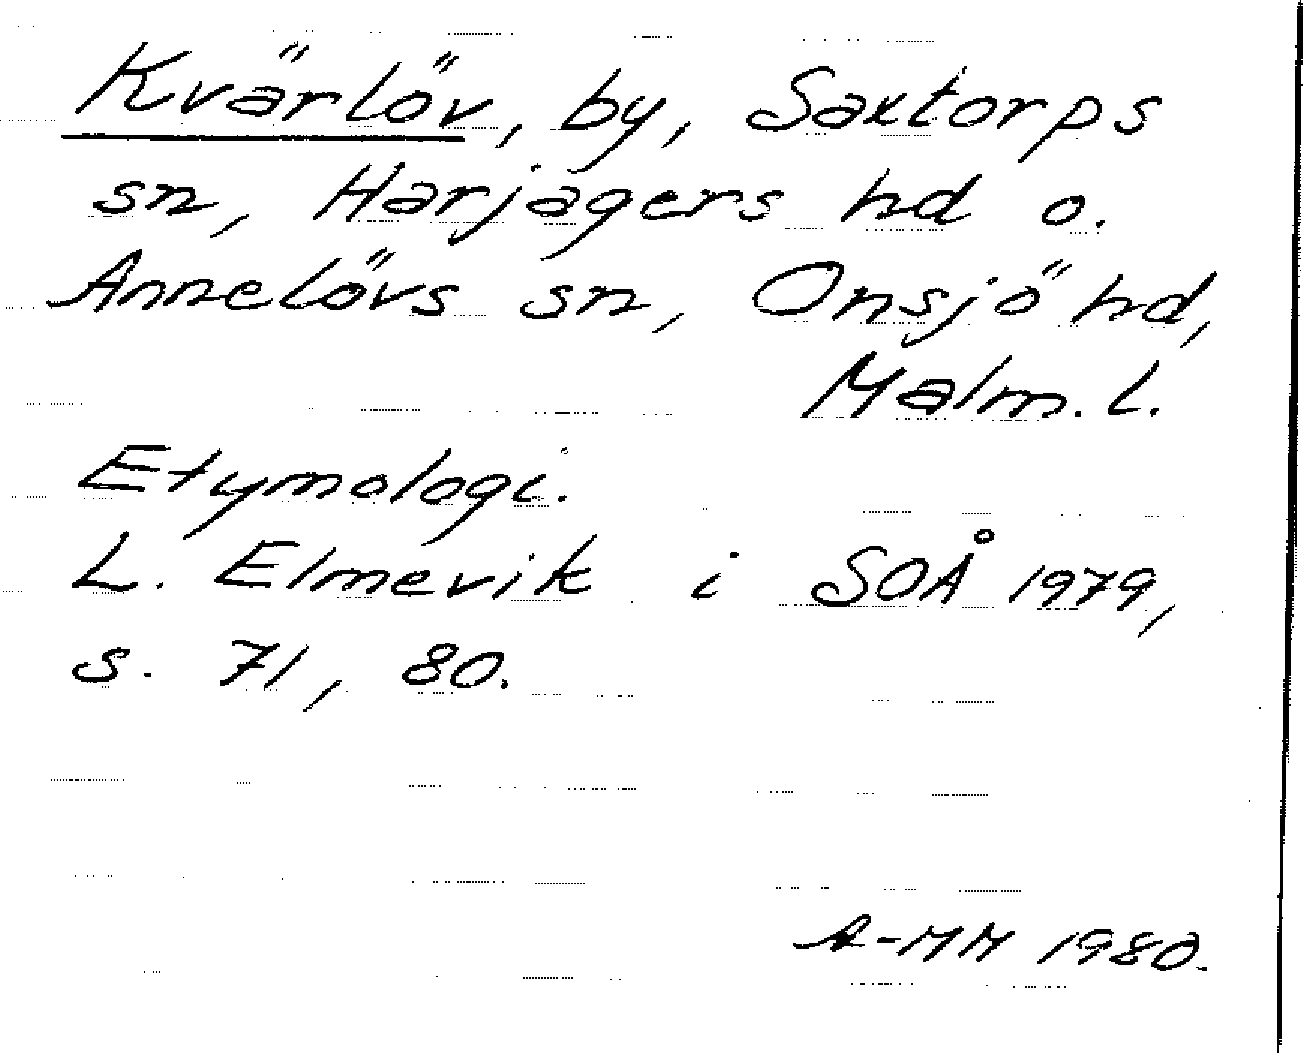 Kvärlöv, by, Saxtorps
sn, Harjagers hd o.
Annelövs sn, Onsjö hd,
Malm. l.
Etymologi.
L. Elmevik i SOÅ 1979,
s. 71, 80.
A-MM 1980.